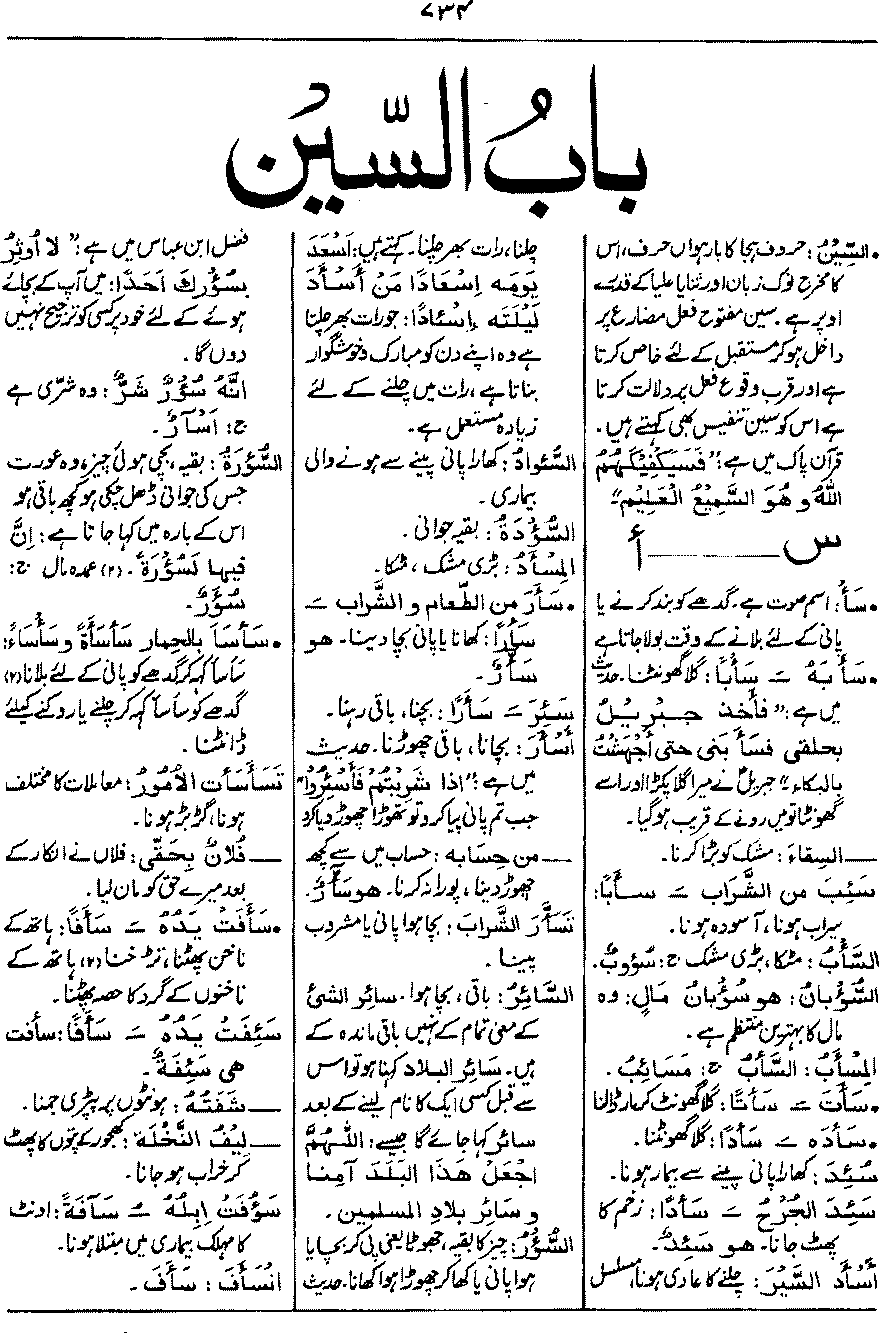 ۷۳۴
بابُ السّین
• السِّیْنُ: حروف ہجا کا بارہواں حرف، اس
کا مخرج نوک زبان اور ثنایا علیا کے قدرے
اوپر ہے۔ سین مفتوح فعل مضارع پر
داخل ہوکر مستقبل کے لئے خاص کرتا
ہے اور قرب وقوع فعل پر دلالت کرتا
ہے اس کو سین تنفیس بھی کہتے ہیں۔
قرآن پاک میں ہے: "فَسَیَکْفِیْکَهُمُ
اللهُ و هُوَ السَّمِیْعُ الْعَلِیْمِ"
س ——— أ
• سَأْ: اسم صوت ہے۔ گدھے کو بند کرنے یا
پانی کے لئے بلانے کے وقت بولا جاتا ہے
• سَأَبَهُ ـَ سَأْبًا: گلا گھونٹنا۔ حدیث
میں ہے: "فأخذ جبریلُ
بحلقی فسأبنی حتی أجْهَشْتُ
بالبکاء" جبریلؑ نے میرا گلا پکڑا اور اسے
گھونٹا تو میں رونے کے قریب ہوگیا۔
— السِقاءَ: مشک کو بڑا کرنا۔
سَئِبَ من الشَّراب ـَ سأبًا:
سیراب ہونا، آسودہ ہونا۔
السَّأْبُ: مٹکا، بڑی مشک ج: سُؤوبٌ۔
السُّؤْبانُ: هو سُؤْبانُ مَالٍ: وہ
مال کا بہترین منتظم ہے۔
المِسْأَبُ: السَّأْبُ ج: مَسَائِبُ۔
• سَأَتَ ـَ سَأْتًا: گلا گھونٹ کر مار ڈالنا
• سَأَدَه ـَ سَأْدًا: گلا گھونٹنا۔
سُئِدَ: کھارا پانی پینے سے بیمار ہونا۔
سَئِدَ الجُرْحُ ـَ سَأَدًا: زخم کا
پھٹ جانا۔ هو سَئِدٌ۔
أَسْأَدَ السَّیْرَ: چلنے کا عادی ہونا، مسلسل
چلنا، رات بھر چلنا۔ کہتے ہیں: اَسْعَدَ
یَومَه اِسْعَادًا مَنْ أَسْأَدَ
لَیْلَتَه إِسْئادًا: جو رات بھر چلتا
ہے وہ اپنے دن کو مبارک و خوشگوار
بناتا ہے، رات میں چلنے کے لئے
زیادہ مستعمل ہے۔
السُّئوادُ: کھارا پانی پینے سے ہونے والی
بیماری۔
السُّؤْدَةُ: بقیہ جوانی۔
المِسْأَدُ: بڑی مشک، مٹکا۔
• سَأَرَ مِن الطَّعام و الشَّراب ـَ
سَأْرًا: کھانا یا پانی بچا دینا۔ هو
سَأَّرٌ۔
سَئِرَ ـَ سَأَرًا: بچنا، باقی رہنا۔
أَسْأَرَ: بچانا، باقی چھوڑنا۔ حدیث
میں ہے: "اذا شَرِبْتُمْ فَأَسْئِرُوا"
جب تم پانی پیا کرو تو تھوڑا چھوڑ دیا کرو
— من حِسابه: حساب میں سے کچھ
چھوڑ دینا، پورا نہ کرنا۔ هو سَأَّرٌ۔
تَسَأَّرَ الشَّرابَ: بچا ہوا پانی یا مشروب
پینا۔
السَّائِرُ: باقی، بچا ہوا۔ سائر الشئ
کے معنی تمام کے نہیں باقی ماندہ کے
ہیں۔ سَائِر البلاد کہنا ہو تو اس
سے قبل کسی ایک کا نام لینے کے بعد
سائر کہا جائے گا جیسے: اللّٰهُمَّ
اجْعَلْ هَذَا البَلَدَ آمِنًا
و سَائِر بلادِ المسلمین۔
السُّؤْرُ: چیز کا بقیہ، جھوٹا یعنی پی کر بچایا
ہوا پانی یا کھا کر چھوڑا ہوا کھانا۔ حدیث
فضل ابن عباس میں ہے: "لا أُوثِرُ
بِسُؤْرِكَ اَحَدًا: میں آپ کے بچائے
ہوئے کے لئے خود پر کسی کو ترجیح نہیں
دوں گا۔
اِنَّهُ سُؤْرُ شَرٍّ: وہ شرّی ہے
ج: أسْآرٌ۔
السُّؤْرَةُ: بقیہ، بچی ہوئی چیز، وہ عورت
جس کی جوانی ڈھل چکی ہو کچھ باقی ہو
اس کے بارہ میں کہا جاتا ہے: إِنَّ
فیها لَسُؤْرَةً۔ (۲) عمدہ مال ج:
سُؤَرٌ۔
• سَأْسَأَ بالحِمار سَأْسَأَةً و سَأْسَاءً:
سَأسَأ کہہ کر گدھے کو پانی کے لئے بلانا (۲)
گدھے کو سَأسَأ کہہ کر چلنے یا رکنے کیلئے
ڈانٹنا۔
تَسَأْسَأَت الأمُورُ: معاملات کا مختلف
ہونا، گڑبڑ ہونا۔
— فُلانٌ بِحَقِّی: فلاں نے انکار کے
بعد میرے حق کو مان لیا۔
• سَأَفَتْ یَدُهُ ـَ سَأْفًا: ہاتھ کے
ناخن پھٹنا، تڑخنا (۲) ہاتھ کے
ناخنوں کے گرد کا حصہ پھٹنا۔
سَئِفَتْ یَدُهُ ـَ سَأَفًا: سأفت
هی سَئِفَةٌ۔
— شَفَتُهُ: ہونٹوں پر پپڑی جمنا۔
— لِیْفُ النَّخْلَة: کھجور کے پتوں کا پھٹ
کر خراب ہو جانا۔
سَؤُفَتْ اِبِلُهُ ـُ سَآفَةً: اونٹ
کا مہلک بیماری میں مبتلا ہونا۔
انْسَأَفَ: سَأَفَ۔